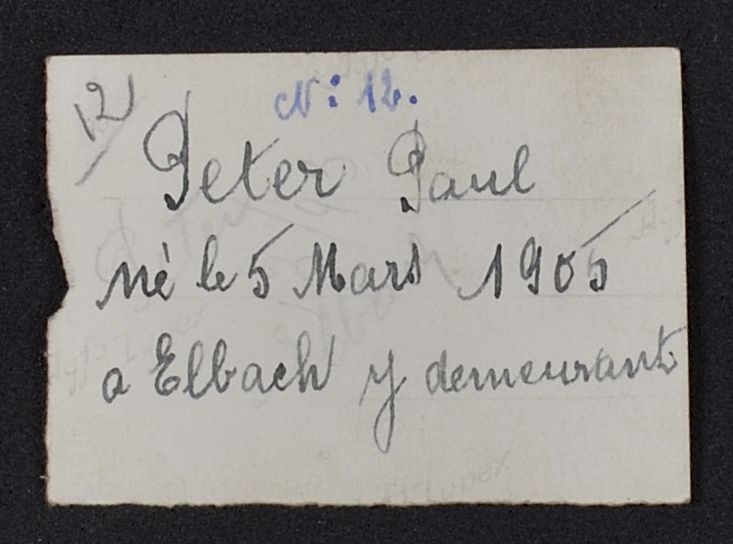 12
N: 12.
Peter Paul
né le 5 Mars 1905
a Elbach y demeurant